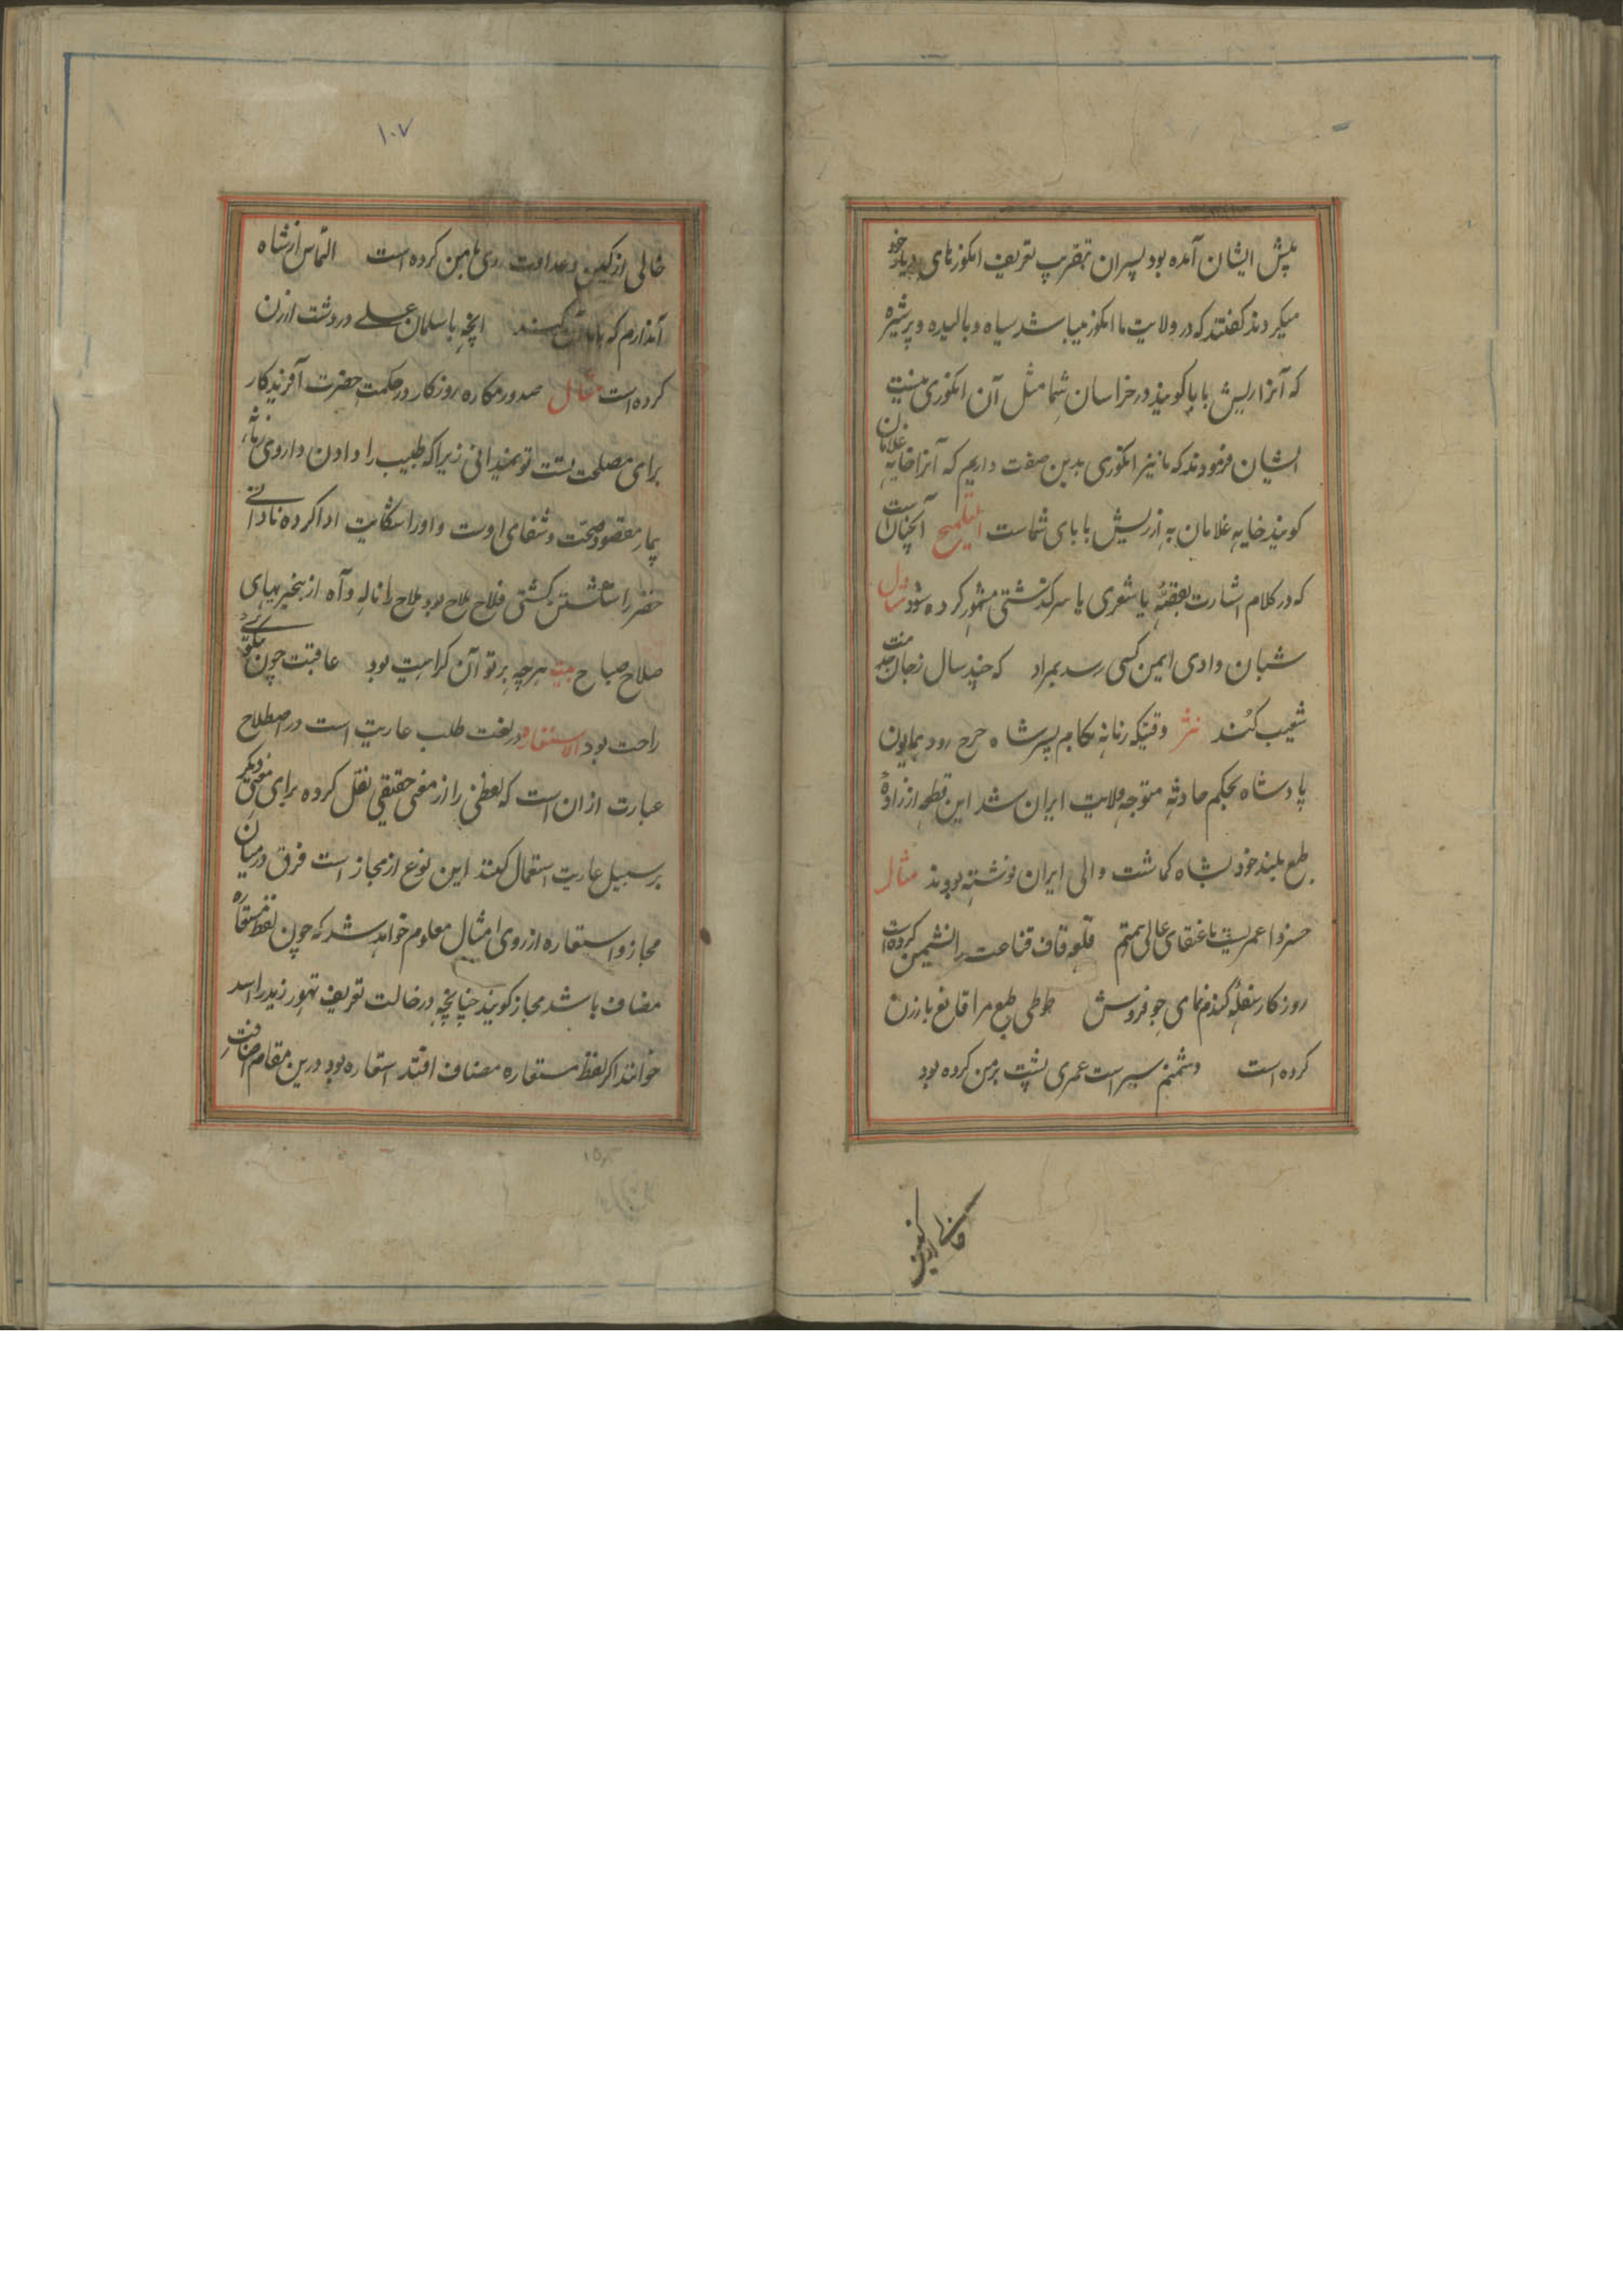 پیش ایشان آمده بود پسران بتقریب تعریف انکورهای دیار خود
میکردند کفتند که در ولایت ما انکور میباشد سیاه و بالیده و پرشیره
که آنرا ریش بابا کویند در خراسان شما مثل آن انکوری نیست
ایشان فرمودند که ما نیز انکوری بدین صفت داریم که آنرا خایه غلامان
کویند خایه غلامان به از ریش بابای شماست التلمیح آنچنان است
که در کلام اشارت بقصّه یا شعری یا سرکذشتی مشهور کرده شود مثال
شبان وادی ایمن کسی رسد بمراد که چند سال بجان خدمت
شعیب کند نثر وقتیکه زمانه بکام پسر شاه رود همایون
پادشاه بحکم حادثه متوجه ولایت ایران شد این قطعه از زادهٔ
طبع بلند خود بشاه والی ایران نوشته بودند مثال
خسروا عمریست تا عنقای عالی همتم قلهٔ قاف قناعت را نشیمن کرده است
روزکار سفلهٔ کندم نمای جو فروش طوطی طبع مرا قانع بارزن
کرده است دشمنم شیر است عمری پشت بر من کرده بود
۱۰۷
خالی از کین و عداوت روی با من کرده است التماس از شاه
آن دارم که با من کند انچه با سلمان علی در دشت ارژن
کرده است مثال صدور مکاره روزکار در حکمت حضرت آفریدکار
برای مصلحت تست تو نمیدانی زیرا که طبیب را دادن داروی
بیمار مقصود صحّت و شفای اوست و او را شکایت ادا کرده نادانی
خضر را شکستن کشتی فلاح ملاح بود ملاح را ناله و آه از بیخبریهای
صلاح صباح بیت هرچه بر تو آن کراهیت بود عاقبت چون بنکری
راحت بود الاستعاره در لغت طلب عاریت است در اصطلاح
عبارت از ان است که لفظی را از معنی حقیقی نقل کرده برای معنی دیکر
بر سبیل عاریت استعمال کنند این نوع از مجاز است فرق در میان
مجاز و استعاره از روی امثال معلوم خواهد شد که چون لفظ مستعاره
مضاف باشد مجاز کویند چنانچه در حالت تعریف تهور زید را اسد
خوانند اکر لفظ مستعاره مضاف افتد استعاره بود درین مقام اضافت